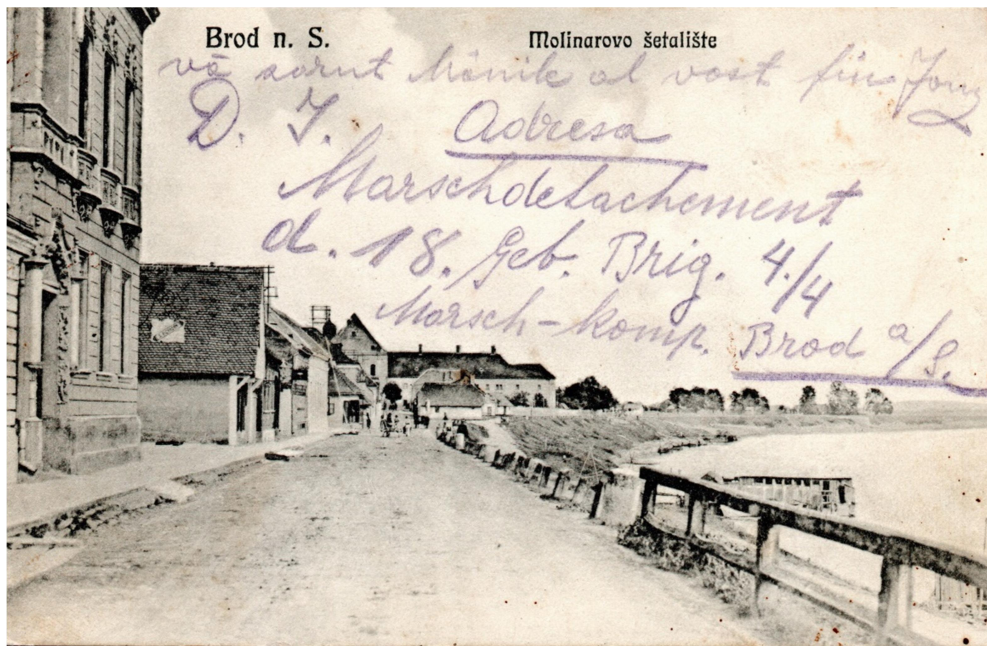 Brod n. S.
Molinarovo šetalište
vă sarut al vost fiu
D. I. Adresa
Marschdetachement
d. 18. Geb. Brig. 4./4
Marsch-komp. Brod a/S.